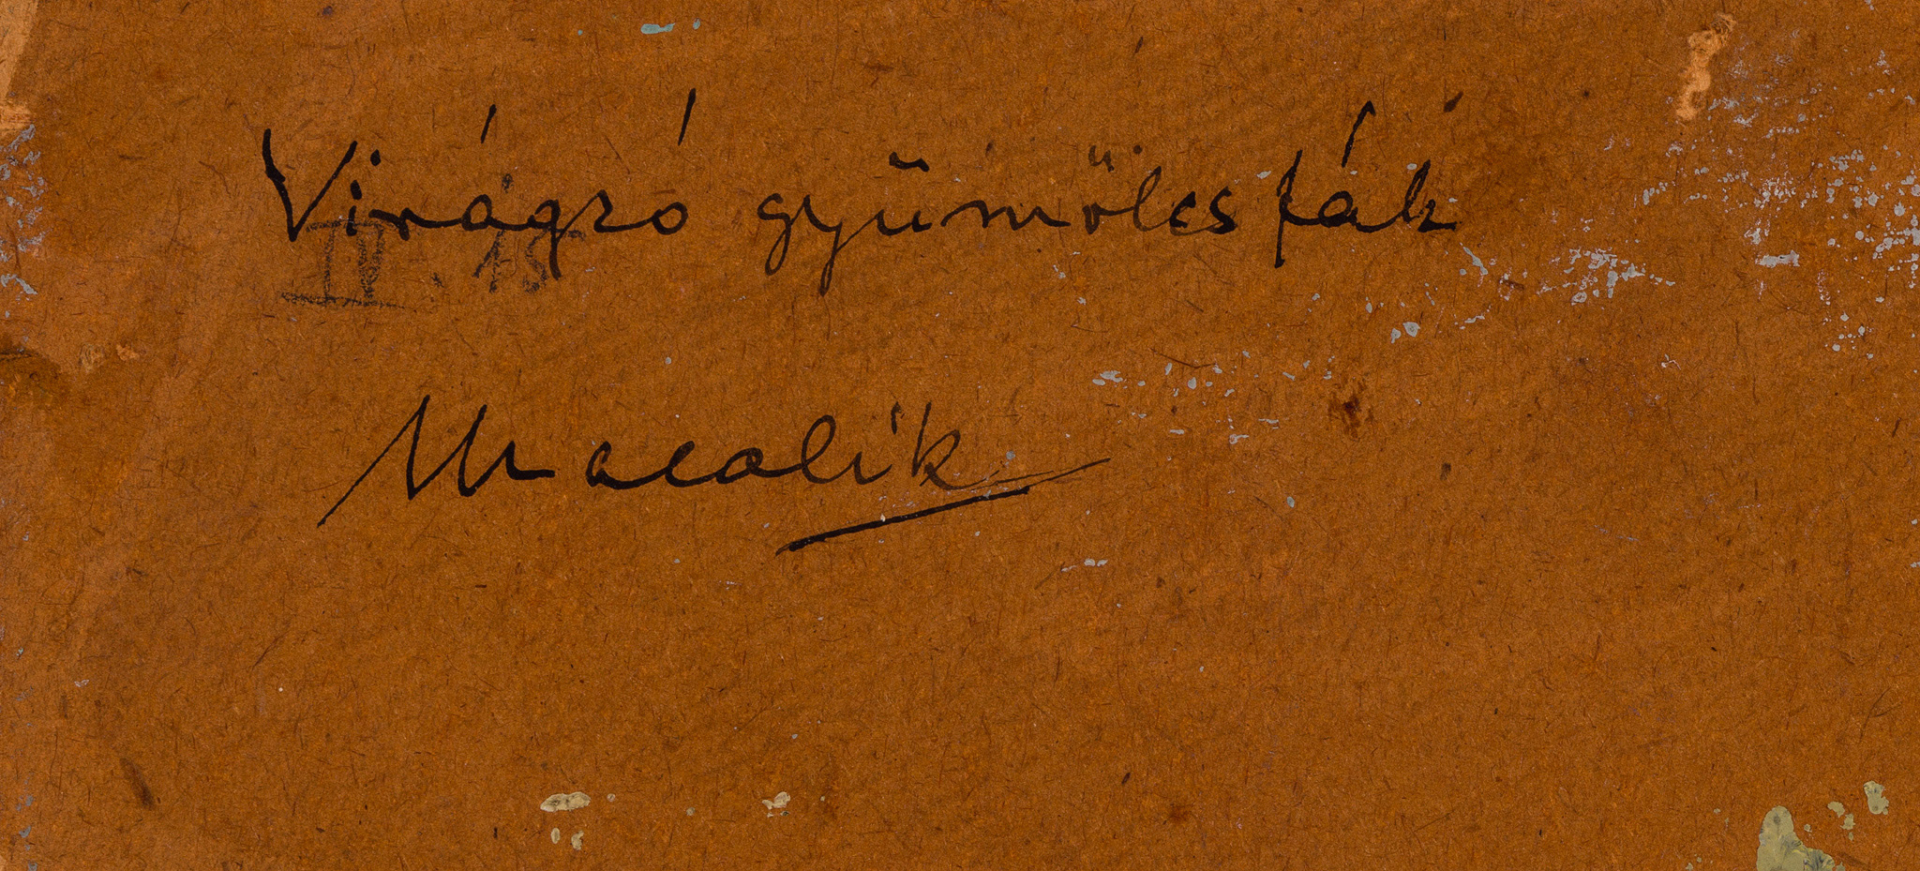 Virágzó gyümölcsfák
IV. 15
Macalik